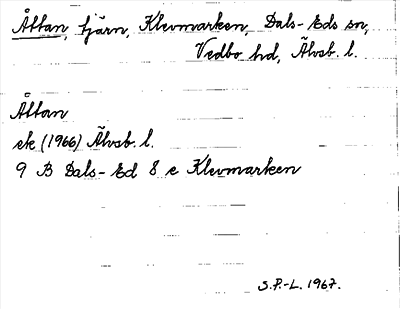 Åttan, tjärn, Klevmarken, Dals-Eds sn,
Vedbo hd, Älvsb. l.
Åttan
ek (1966) Älvsb. l.
9 B Dals-Ed 8 e Klevmarken
S.P.-L. 1967.